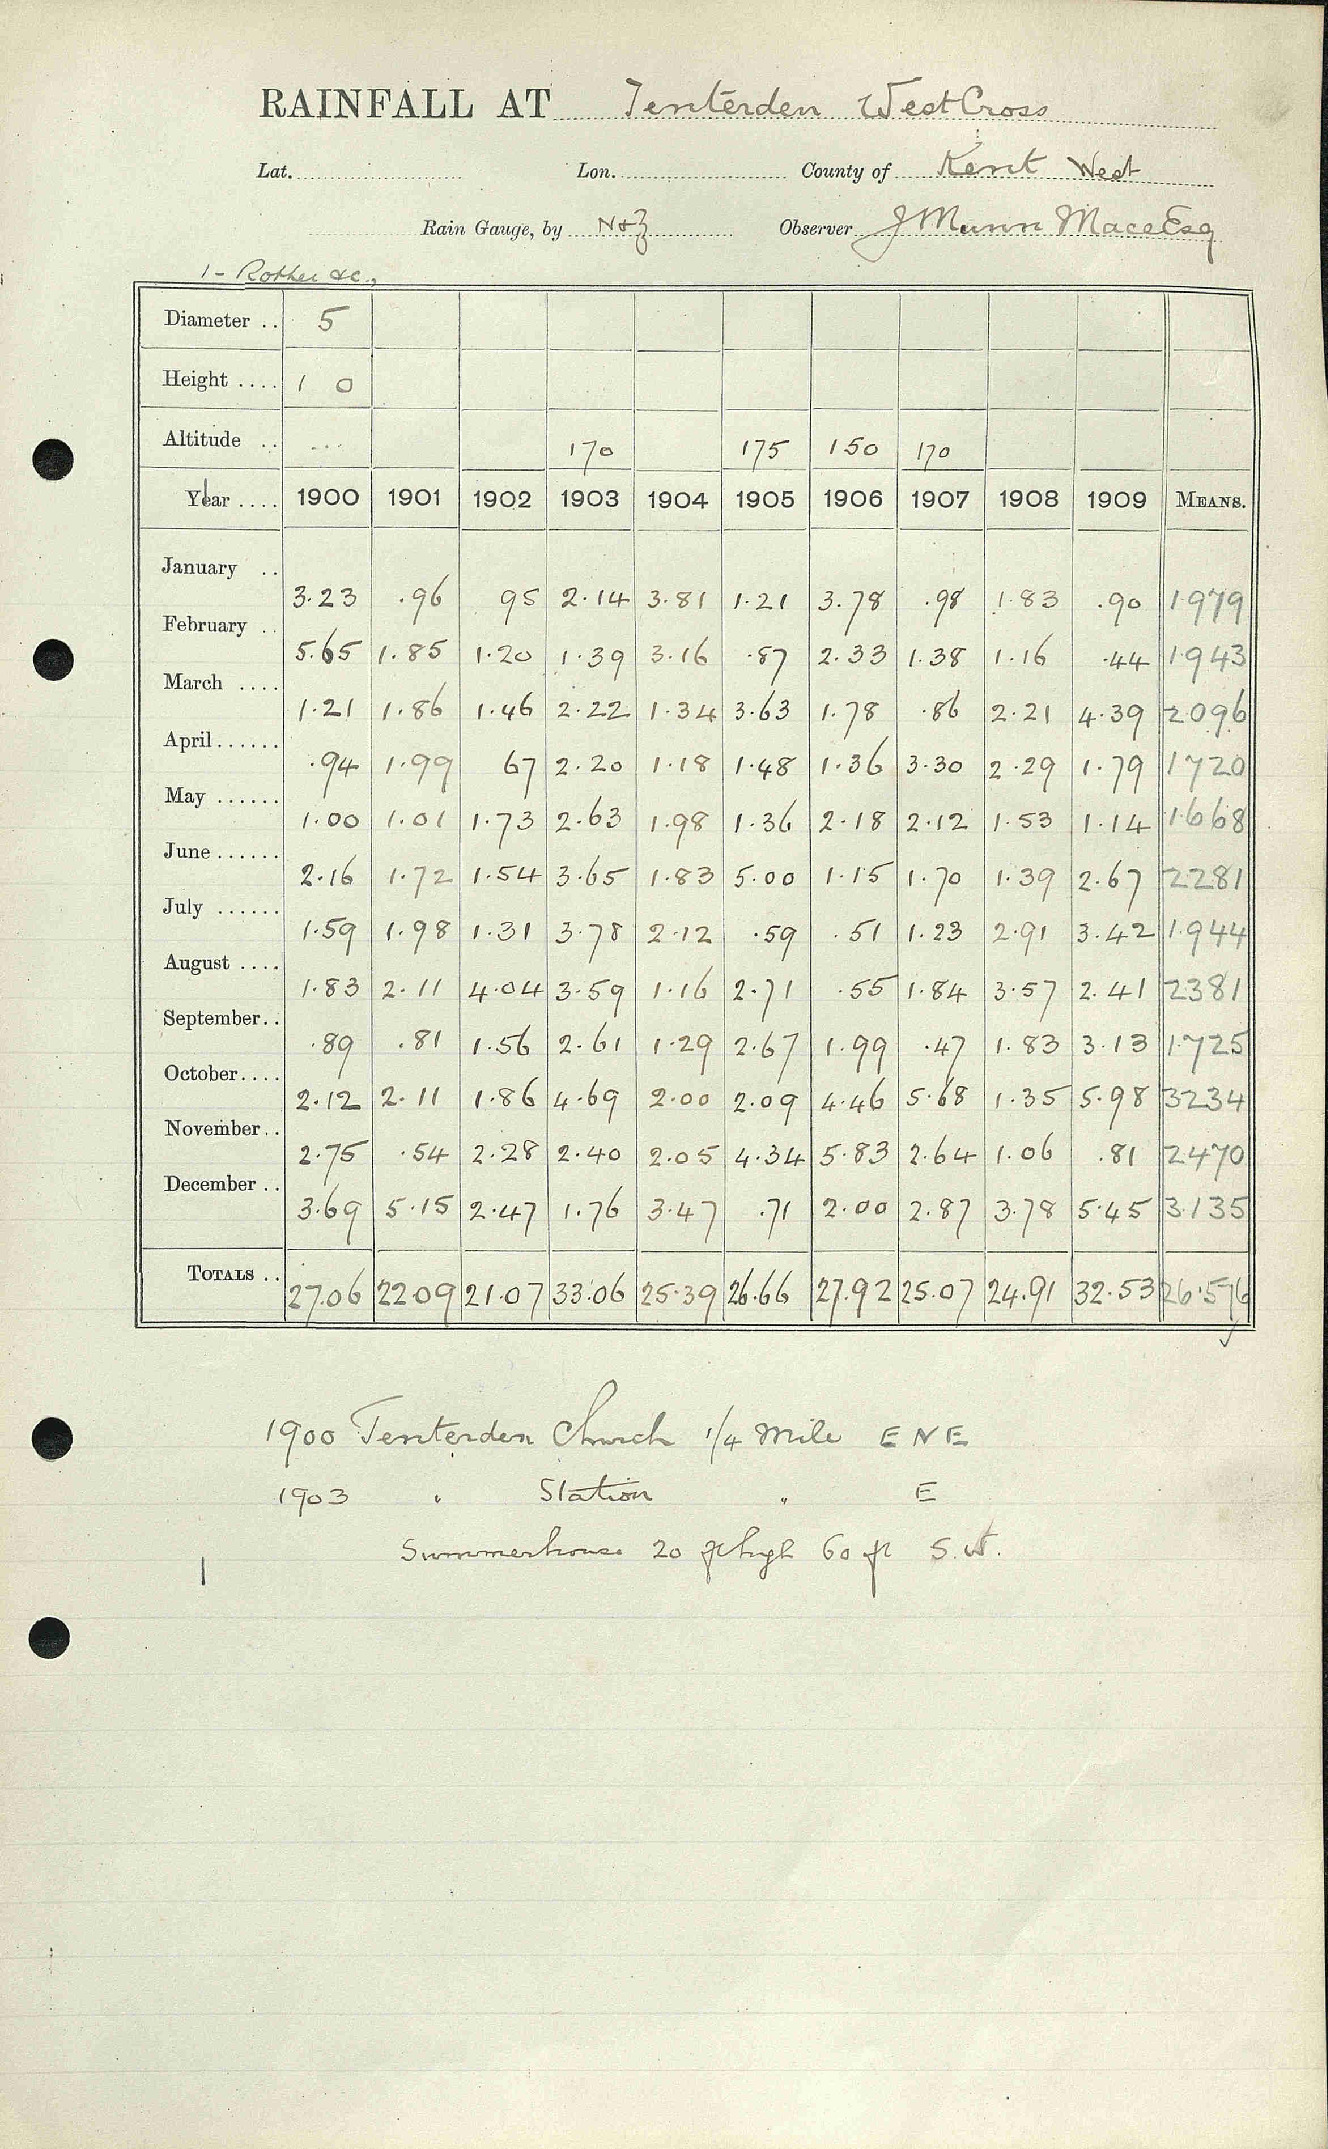 RAINFALL AT Tenterden West Cross
Lat. Lon. County of Kent West
Rain Gauge, by N&Z Observer J Munn Mace Esq
1 - Rother &c.,
Diameter .. 5
Height .... 1 0
Altitude .. ... 170 175 150 170
Year .... 1900 1901 1902 1903 1904 1905 1906 1907 1908 1909 MEANS.
January .. 3.23 .96 95 2.14 3.81 1.21 3.78 .98 1.83 .90 1.979
February .. 5.65 1.85 1.20 1.39 3.16 .87 2.33 1.38 1.16 .44 1.943
March .... 1.21 1.86 1.46 2.22 1.34 3.63 1.78 .86 2.21 4.39 2.096
April...... .94 1.99 67 2.20 1.18 1.48 1.36 3.30 2.29 1.79 1720
May ...... 1.00 1.01 1.73 2.63 1.98 1.36 2.18 2.12 1.53 1.14 1.668
June...... 2.16 1.72 1.54 3.65 1.83 5.00 1.15 1.70 1.39 2.67 2281
July ...... 1.59 1.98 1.31 3.78 2.12 .59 .51 1.23 2.91 3.42 1.944
August .... 1.83 2.11 4.04 3.59 1.16 2.71 .55 1.84 3.57 2.41 2381
September.. .89 .81 1.56 2.61 1.29 2.67 1.99 .47 1.83 3.13 1.725
October.... 2.12 2.11 1.86 4.69 2.00 2.09 4.46 5.68 1.35 5.98 3234
November.. 2.75 .54 2.28 2.40 2.05 4.34 5.83 2.64 1.06 .81 2470
December .. 3.69 5.15 2.47 1.76 3.47 .71 2.00 2.87 3.78 5.45 3.135
TOTALS .. 27.06 2209 21.07 33.06 25.39 26.66 27.92 25.07 24.91 32.53 26.576
1900 Tenterden Church 1/4 Mile E N E
1903 " Station " E
Summerhouse 20 ft high 60 ft S.W.